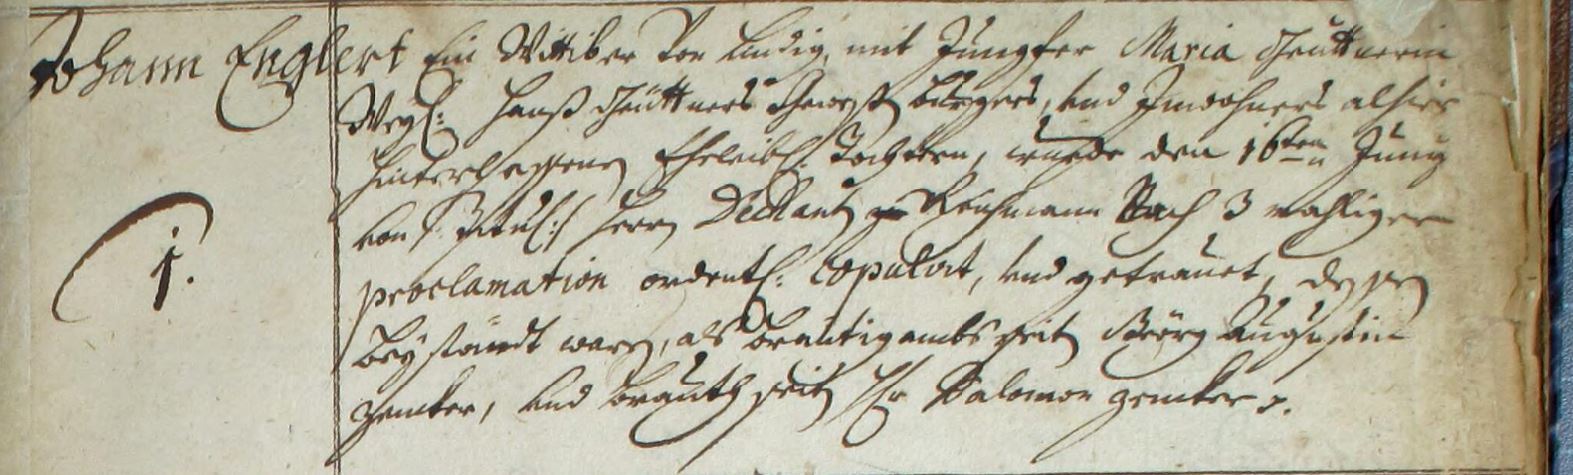 Johann Englert Ein Wittiber von Ludig, mit Jungfer Maria Theüttnerin
Weyl: Hanß Theüttners gewest bürgers, und Innwohners alhier
Hinterlassenen Eheleibl: Tochtern, wurde den 16ten Juny
von S: Titul: Herrn Dechant zu Nach 3 mahliger
1.
proclamation ordentl: Copulirt, und getrauet, dessen
beystandt waren, als bräutigambs seits Georg Augustin
Zencker, und brauth seits Hr Salomon Zencker